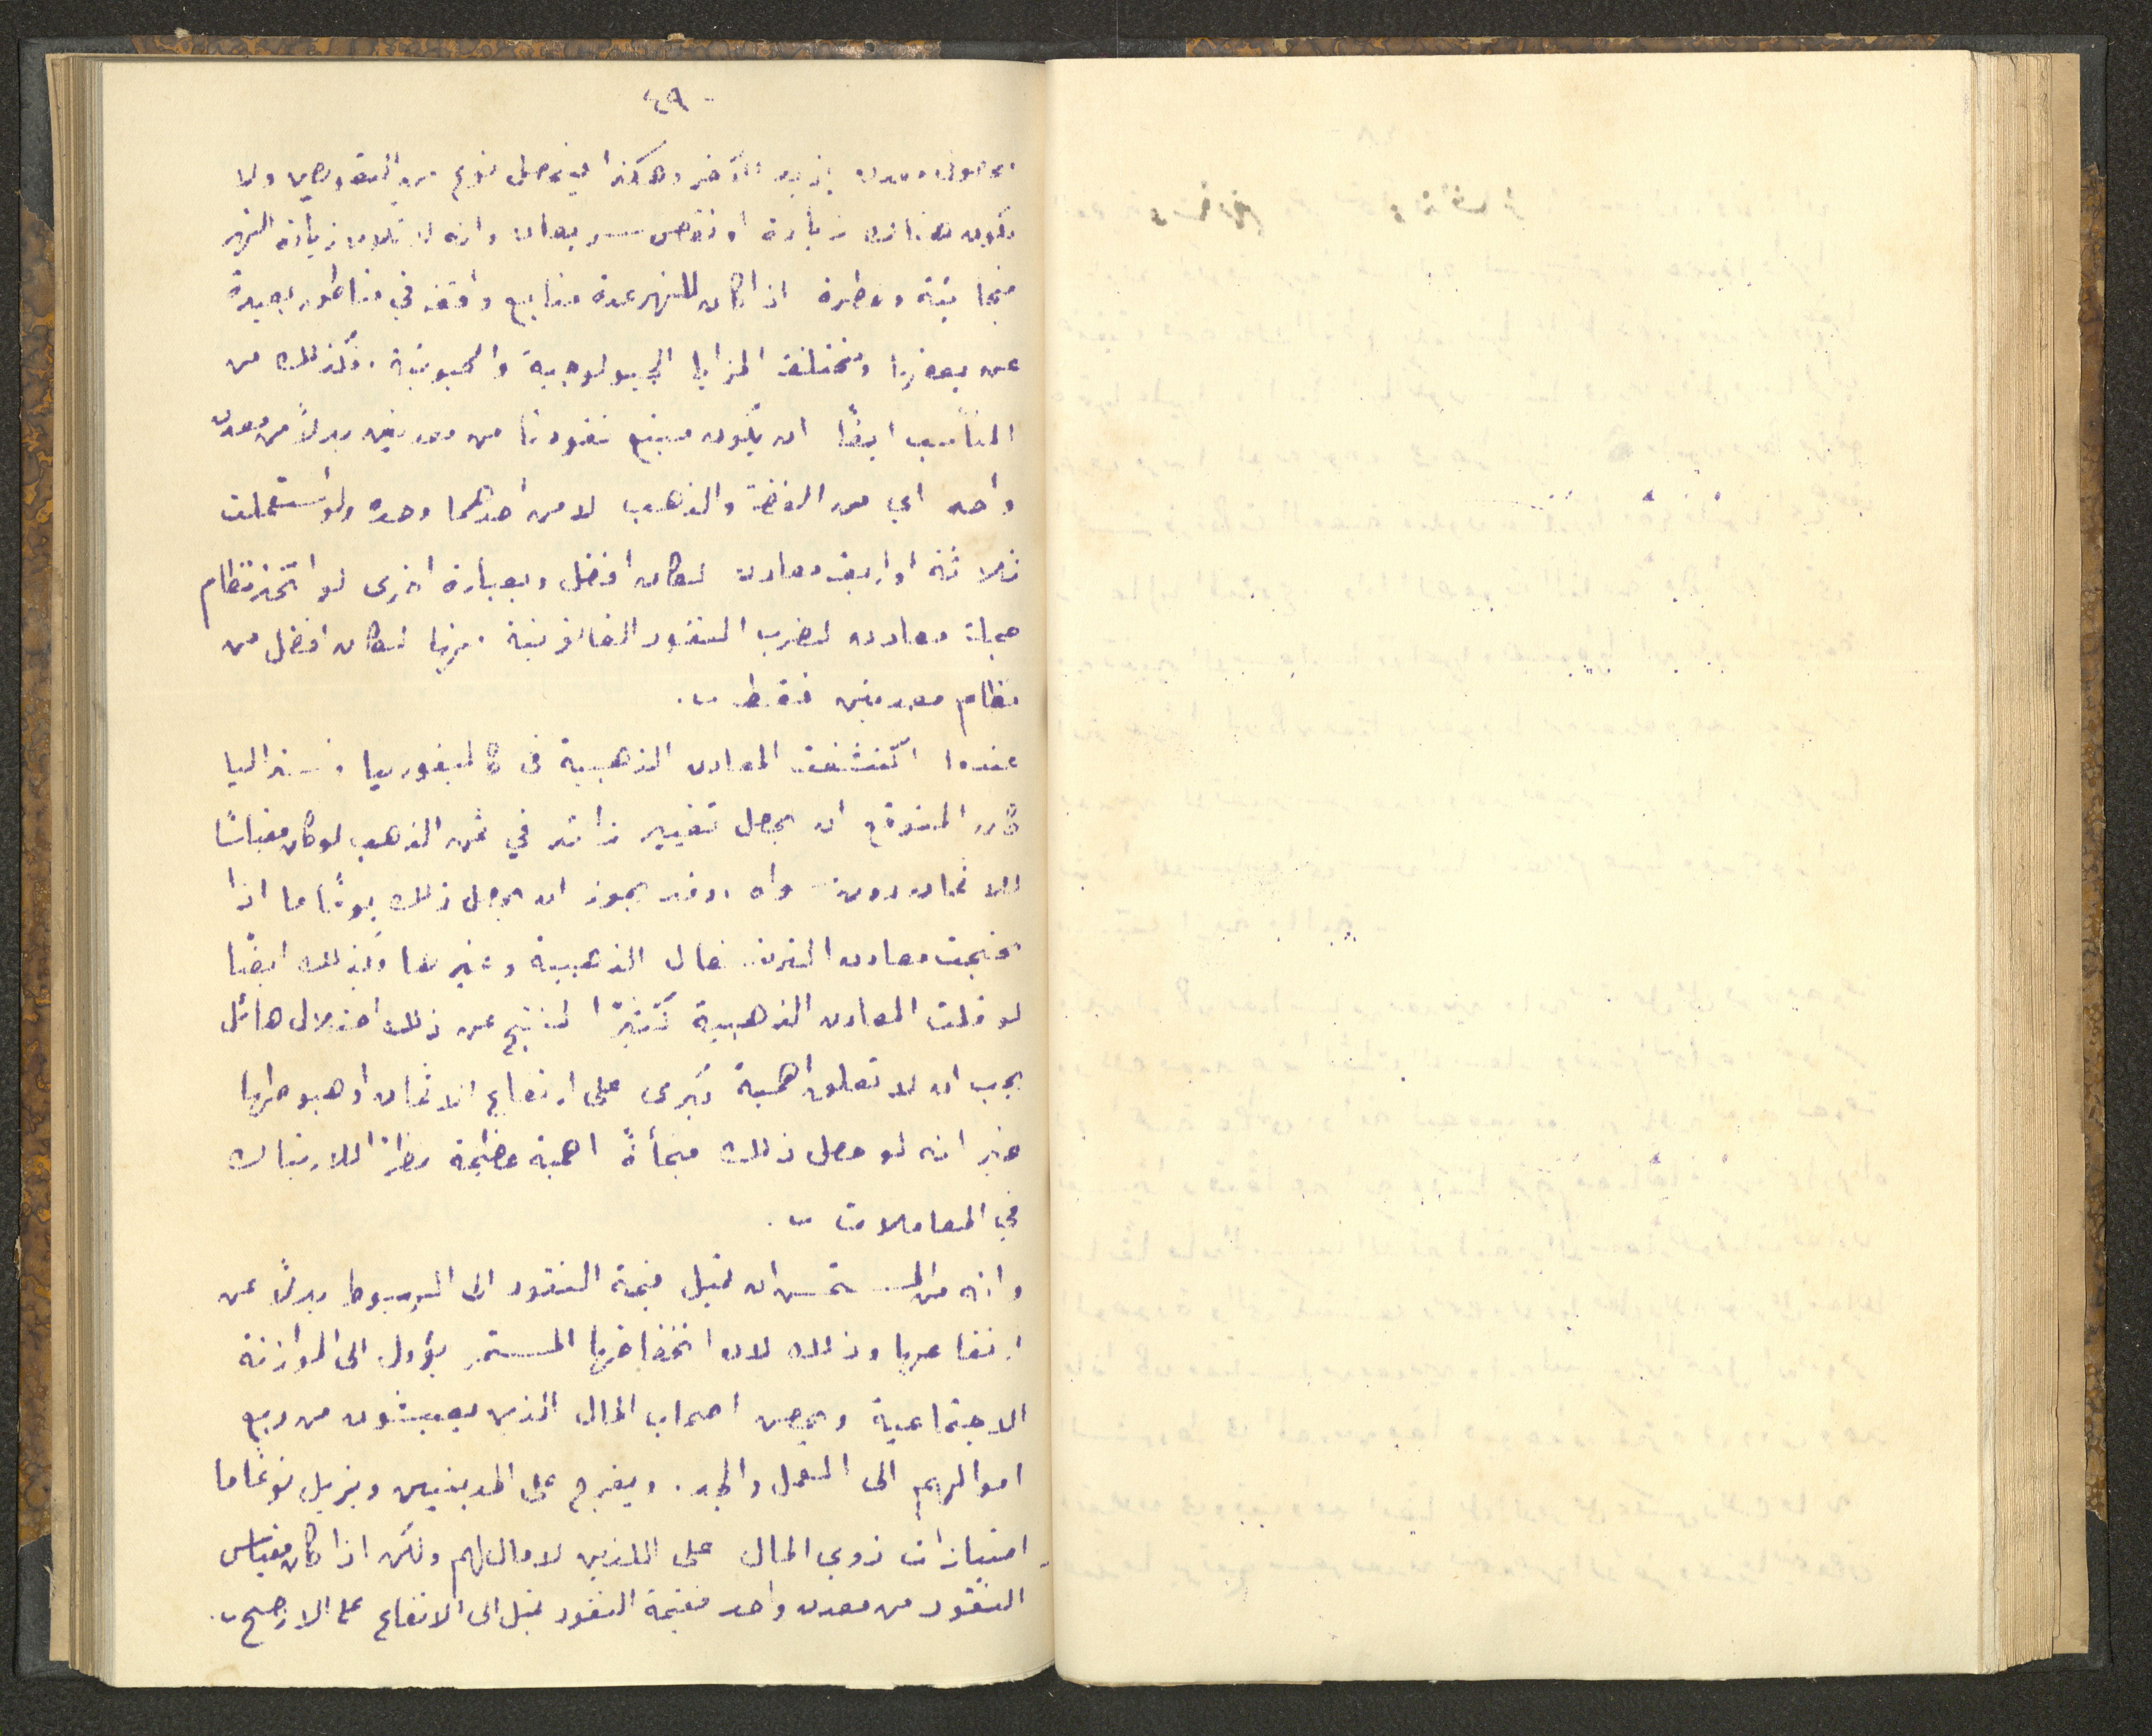 ٤٩ -
محصول معدن يزيد الآخر وهكذا يحصل نوع من التعويض ولا
يكون هناك زيادة او نقص سريعان وانه لا تكون زيادة النهر
فجائية وخطرة اذا كان للنهر عدة منابع واقعة في مناطق بعيدة
عن بعضها ومختلفة المزايا الجيولوجية والجوية. وكذلك من
المناسب ايضًا ان يكون منبع نقودنا من معدنين بدلًا من معدن
واحد اي من الفضة والذهب لا من احدهما وحده ولو استعملت
ثلاثة او اربعة معادن لكان افضل وبعبارة اخرى لو اتخذ نظام
جملة معادن لضرب النقود القانونية منها لكان افضل من
نظام معدنين فقط .
عندما اكتشفت المعادن الذهبية في كاليفورنيا و ستراليا
كان المتوقع ان يحصل تغيير زائد في ثمن الذهب لو كان مقياسًا
للاثمان دون سواه . وقد يجوز ان يحصل ذلك يومًا ما اذا
نجحت معادن الترنسفال الذهبية وغيرها وكذلك ايضًا
لو قلت المعادن الذهبية كثيرًا لنتج عن ذلك اختلال هائل
يجب ان لا تعلق اهمية كبرى على ارتفاع الاثمان او هبوطها
غير انه لو حصل ذلك فجأةً اهمية عظيمة نظرًا للارتباك
في المعاملات .
وانه من المستحسن ان تميل قيمة النقود الى الهبوط بدلًا عن
ارتفاعها وذلك لان انخفاضها المستمر يؤول الى الموازنة
الاجتماعية ويحض اصحاب المال الذين يعيشون من ريع
اموالهم الى العمل والجد . ويفرج على المدينين ويزيل نوعًا ما
امتيازات ذوي المال على اللذين لا مال لهم ولكن اذا كان مقياس
النقود من معدن واحد فقيمة النقود تميل الى الارتفاع على الارجح .